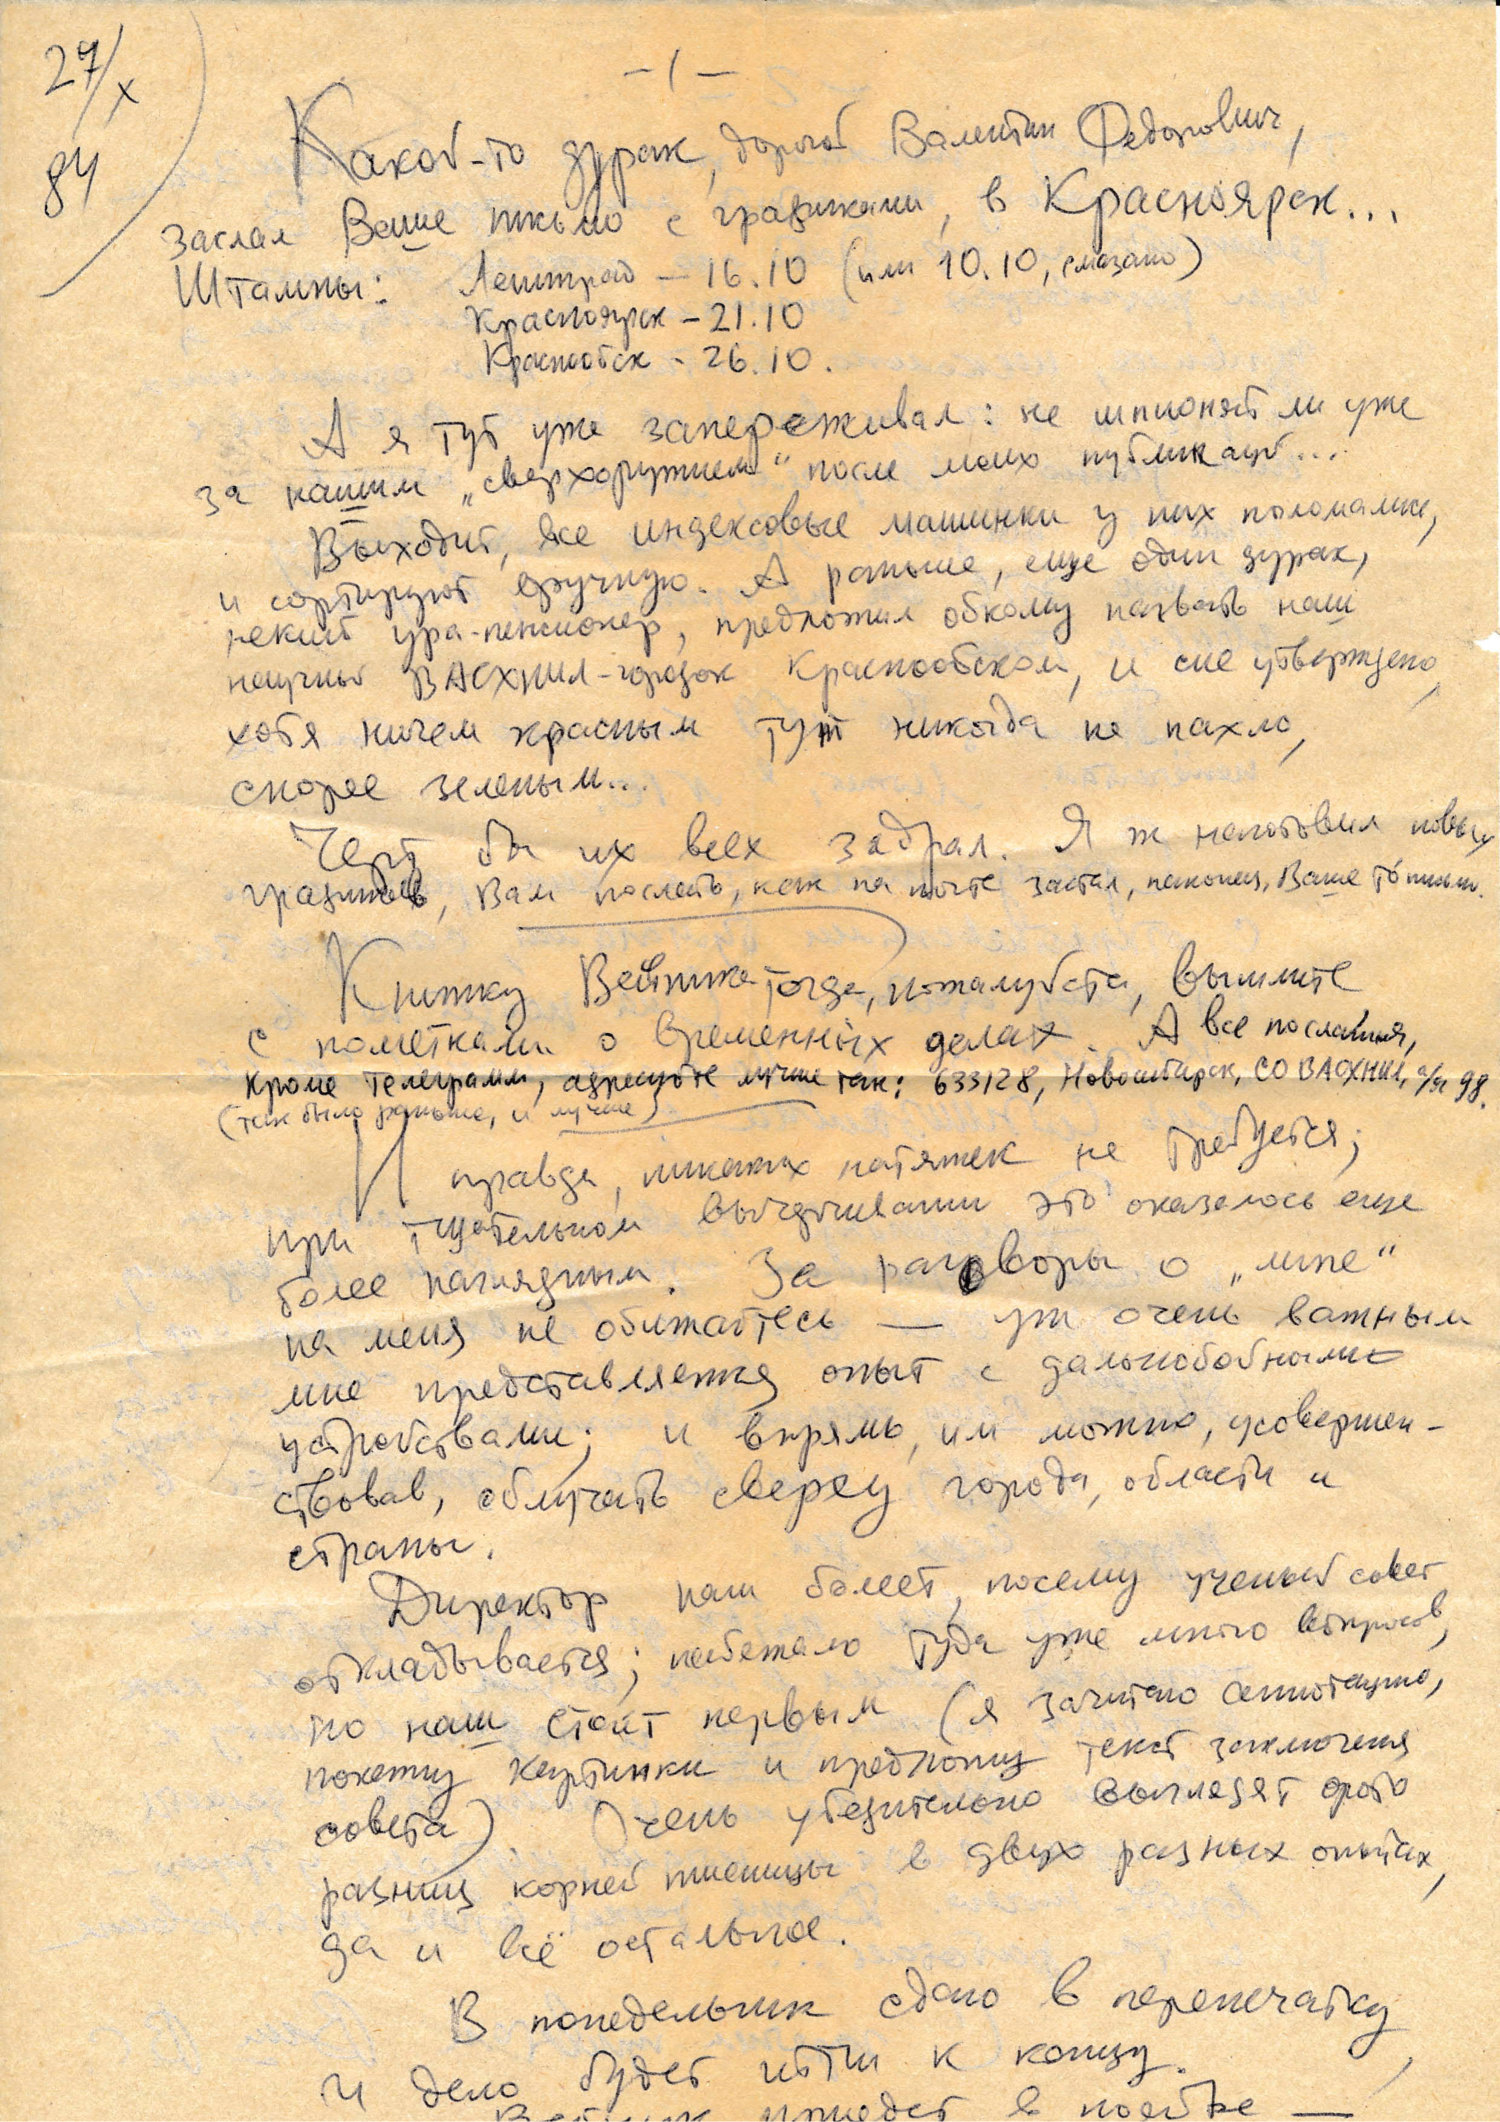 27/X
84
- 1 -
Какой-то дурак, дорогой Валентин Федорович,
заслал Ваше письмо с графиками, в Красноярск...
Штампы: Ленинград - 16.10 (или 10.10, смазано)
Красноярск - 21.10
Краснообск - 26.10.
А я тут уже запереживал: не шпионят ли уже
за нашим „сверхоружием“ после моих публикаций...
Выходит, все индексовые машинки у них поломались,
и сортируют вручную. А раньше, еще один дурак,
некий ура-пенсионер, предложил обкому назвать наш
научный ВАСХНИЛ-городок Краснообском, и сие утверждено,
хотя ничем красным тут никогда не пахло,
скорее зеленым...
Черт бы их всех задрал. Я ж наготовил новых
графиков, Вам послать, как на почте застал, наконец, Ваше то письмо.
Книжку Вейника тогда, пожалуйста, вышлите
с пометками о временных делах. А все послания,
кроме телеграмм, адресуйте лучше так: 633128, Новосибирск, СО ВАСХНИЛ, а/я 98.
(так было раньше, и лучше)
И правда, никаких натяжек не требуется;
при тщательном вычерчивании это оказалось еще
более наглядным. За разговоры о „мне“
на меня не обижайтесь — уж очень важным
мне представляется опыт с дальнобойными
устройствами; и впрямь, им можно, усовершен-
ствовав, облучать сверху города, области и
страны.
Директор наш болеет, посему ученый совет
откладывается; набежало туда уже много вопросов,
но наш стоит первым (я зачитаю аннотацию,
покажу картинки и предложу текст заключения
совета). Очень убедительно выглядят фото
разниц корней пшеницы в двух разных опытах,
да и всё остальное.
В понедельник сдаю в перепечатку,
и дело будет идти к концу.
Вейник приедет в ноябре —